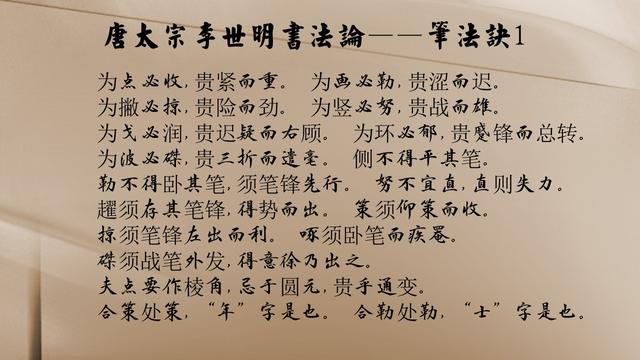 唐太宗李世明書法論——筆法訣1
为点必收，贵紧而重。 为画必勒，贵涩而迟。
为撇必掠，贵险而劲。 为竖必努，贵战而雄。
为戈必润，贵迟疑而右顾。 为环必郁，贵蹙锋而总转。
为波必磔，贵三折而遣毫。 侧不得平其笔。
勒不得卧其笔，须笔锋先行。 努不宜直，直则失力。
趯须存其笔锋，得势而出。 策须仰策而收。
掠须笔锋左出而利。 啄须卧笔而疾罨。
磔须战笔外发，得意徐乃出之。
夫点要作棱角，忌于圆元，贵乎通变。
合策处策，“年”字是也。 合勒处勒，“士”字是也。